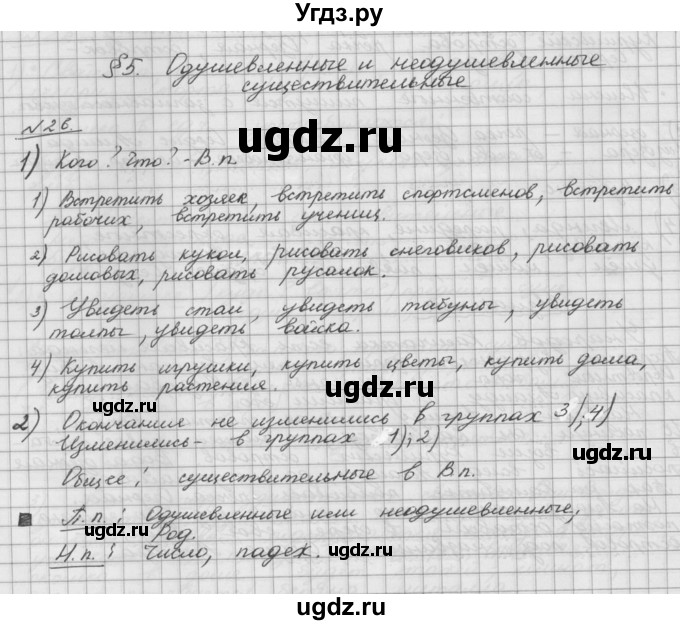 Угдз.ру
§5. Одушевленные и неодушевленные
существительные
№26.
ugdz.ru
1) Кого? Что? - В.п.
1) Встретить хозяек, встретить спортсменов, встретить
рабочих, встретить учениц.
2) Рисовать кукол, рисовать снеговиков, рисовать
домовых, рисовать русалок.
ugdz.ru
3) Увидеть стаи, увидеть табуны, увидеть
толпы, увидеть войска.
4) Купить игрушки, купить цветы, купить дома,
купить растения.
ugdz.ru
2) Окончания не изменились в группах 3), 4)
Изменились - в группах 1), 2)
ugdz.ru
Общее: существительные в В.п.
П.п.: Одушевленные или неодушевленные,
Род.
ugdz.ru
Н.п.: Число, падеж.
ugdz.ru
ugdz.ru